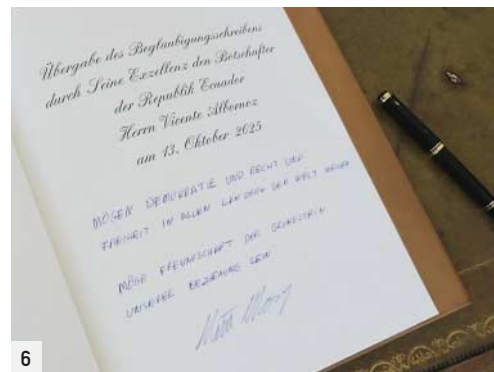 Übergabe des Beglaubigungsschreibens
durch Seine Exzellenz den Botschafter
der Republik Ecuador
Herrn Vicente Albornoz
am 13. Oktober 2025
MÖGEN DEMOKRATIE UND RECHT UND
FREIHEIT IN ALLEN LÄNDERN DER WELT
MÖGE FREUNDSCHAFT DER GRUNDSTEIN
UNSERER BEZIEHUNG SEIN
6